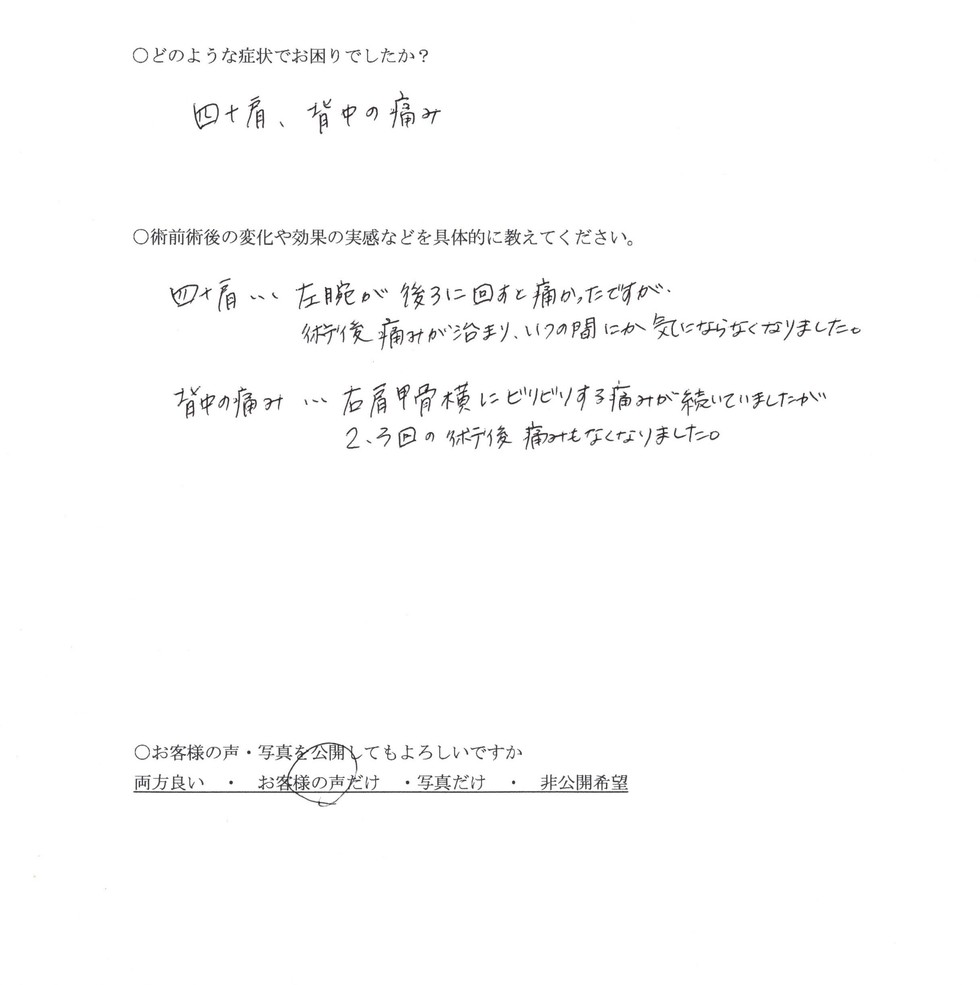 ○どのような症状でお困りでしたか？
四十肩、背中の痛み
○術前術後の変化や効果の実感などを具体的に教えてください。
四十肩… 左腕が後ろに回すと痛かったですが、
術後痛みが治まり、いつの間にか気にならなくなりました。
背中の痛み… 右肩甲骨横にビリビリする痛みが続いていましたが
2、3回の術後痛みもなくなりました。
○お客様の声・写真を公開してもよろしいですか
両方良い ・ お客様の声だけ ・写真だけ ・ 非公開希望